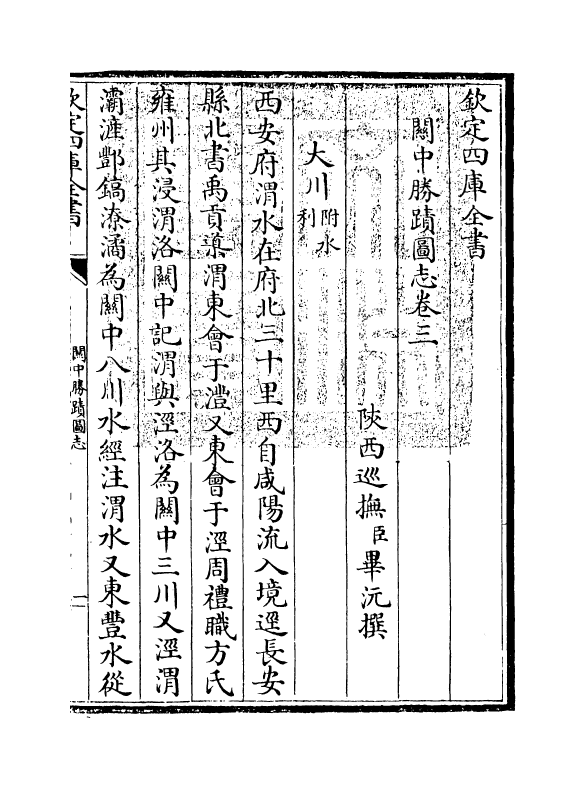 欽定四庫全書
關中勝蹟圖志卷三
陜西巡撫臣畢沅撰
大川附水利
西安府渭水在府北三十里西自咸陽流入境逕長安
縣北書禹貢導渭東會于灃又東會于涇周禮職方氏
雍州其浸渭洛關中記渭與涇洛為關中三川又涇渭
灞滻酆鎬潦潏為關中八川水經注渭水又東豐水從
欽定四庫全書
關中勝蹟圖志